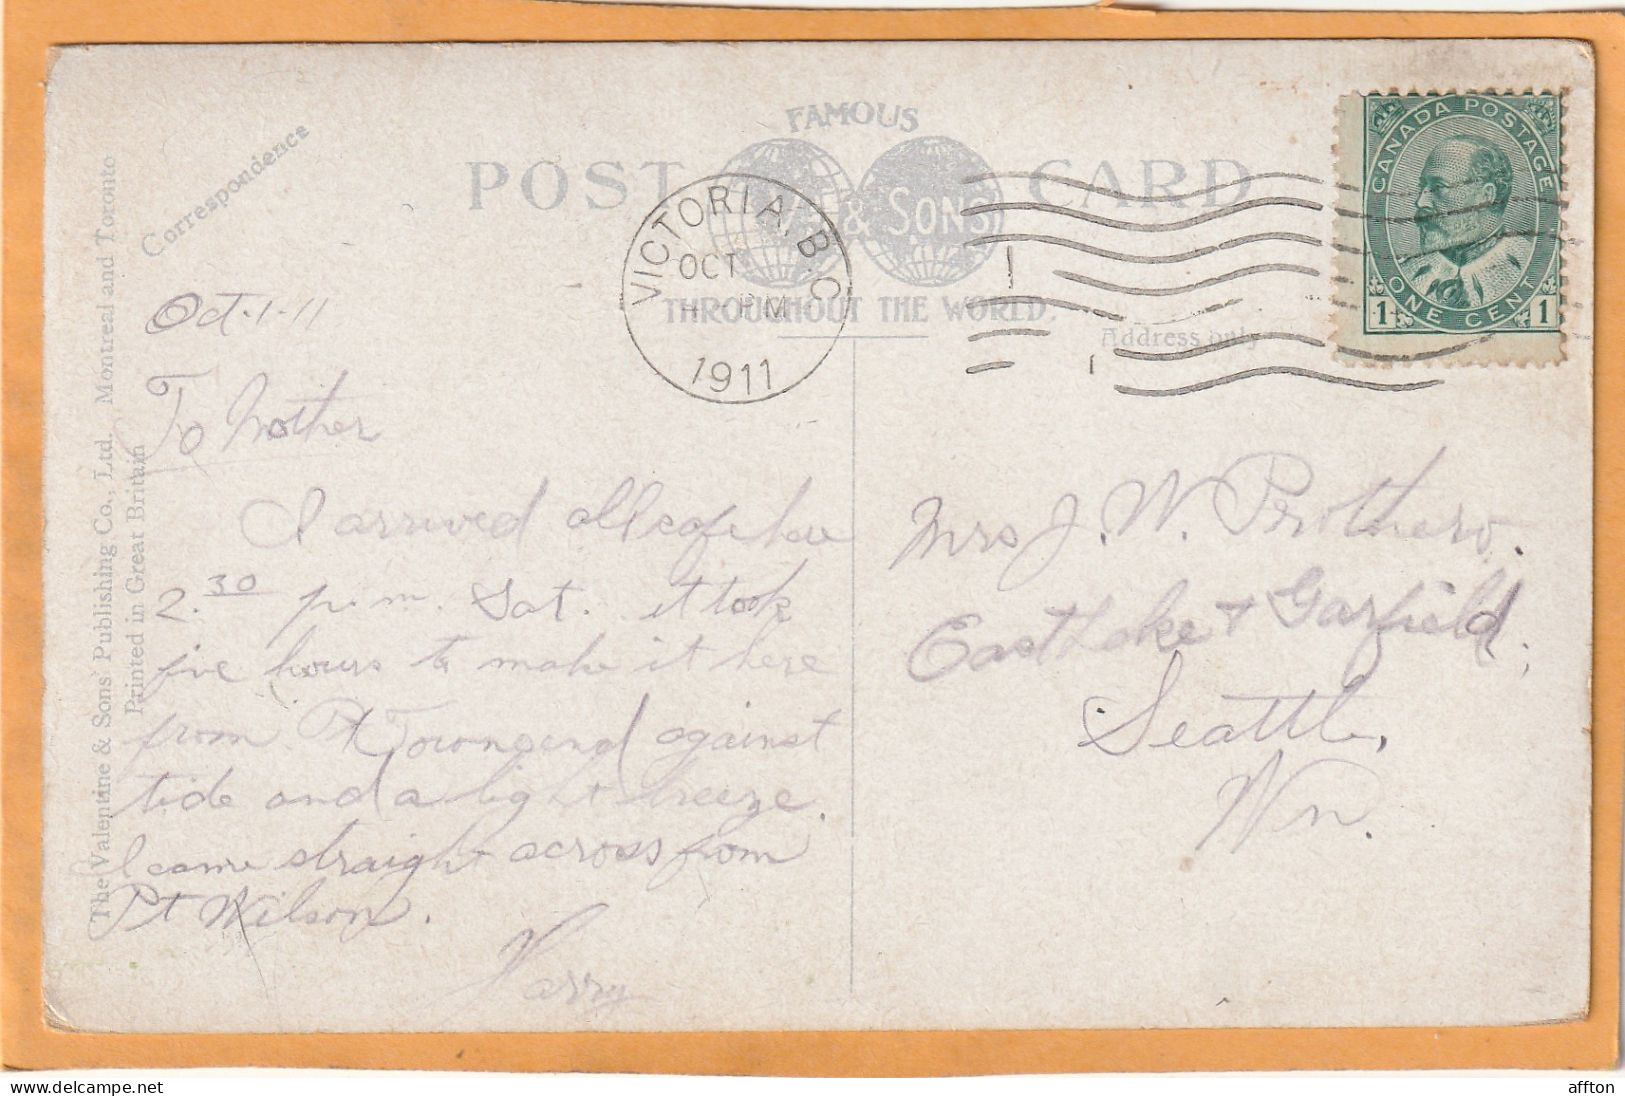 FAMOUS
POST CARD
& SONS
THROUGHOUT THE WORLD.
Correspondence
Address only
The Valentine & Sons' Publishing Co., Ltd. Montreal and Toronto
Printed in Great Britain
VICTORIA, B.C.
OCT 1
PM
1911
CANADA POSTAGE
1 ONE CENT 1
Oct-1-11
To Mother
I arrived all safe here
2.30 p.m. Sat. it took
five hours to make it here
from Pt Townsend against
tide and a light breeze.
I came straight across from
Pt Wilson.
Harry
Mrs J. W. Prothero.
East Lake + Garfield,
Seattle,
Wn.
delcampe.net
affton